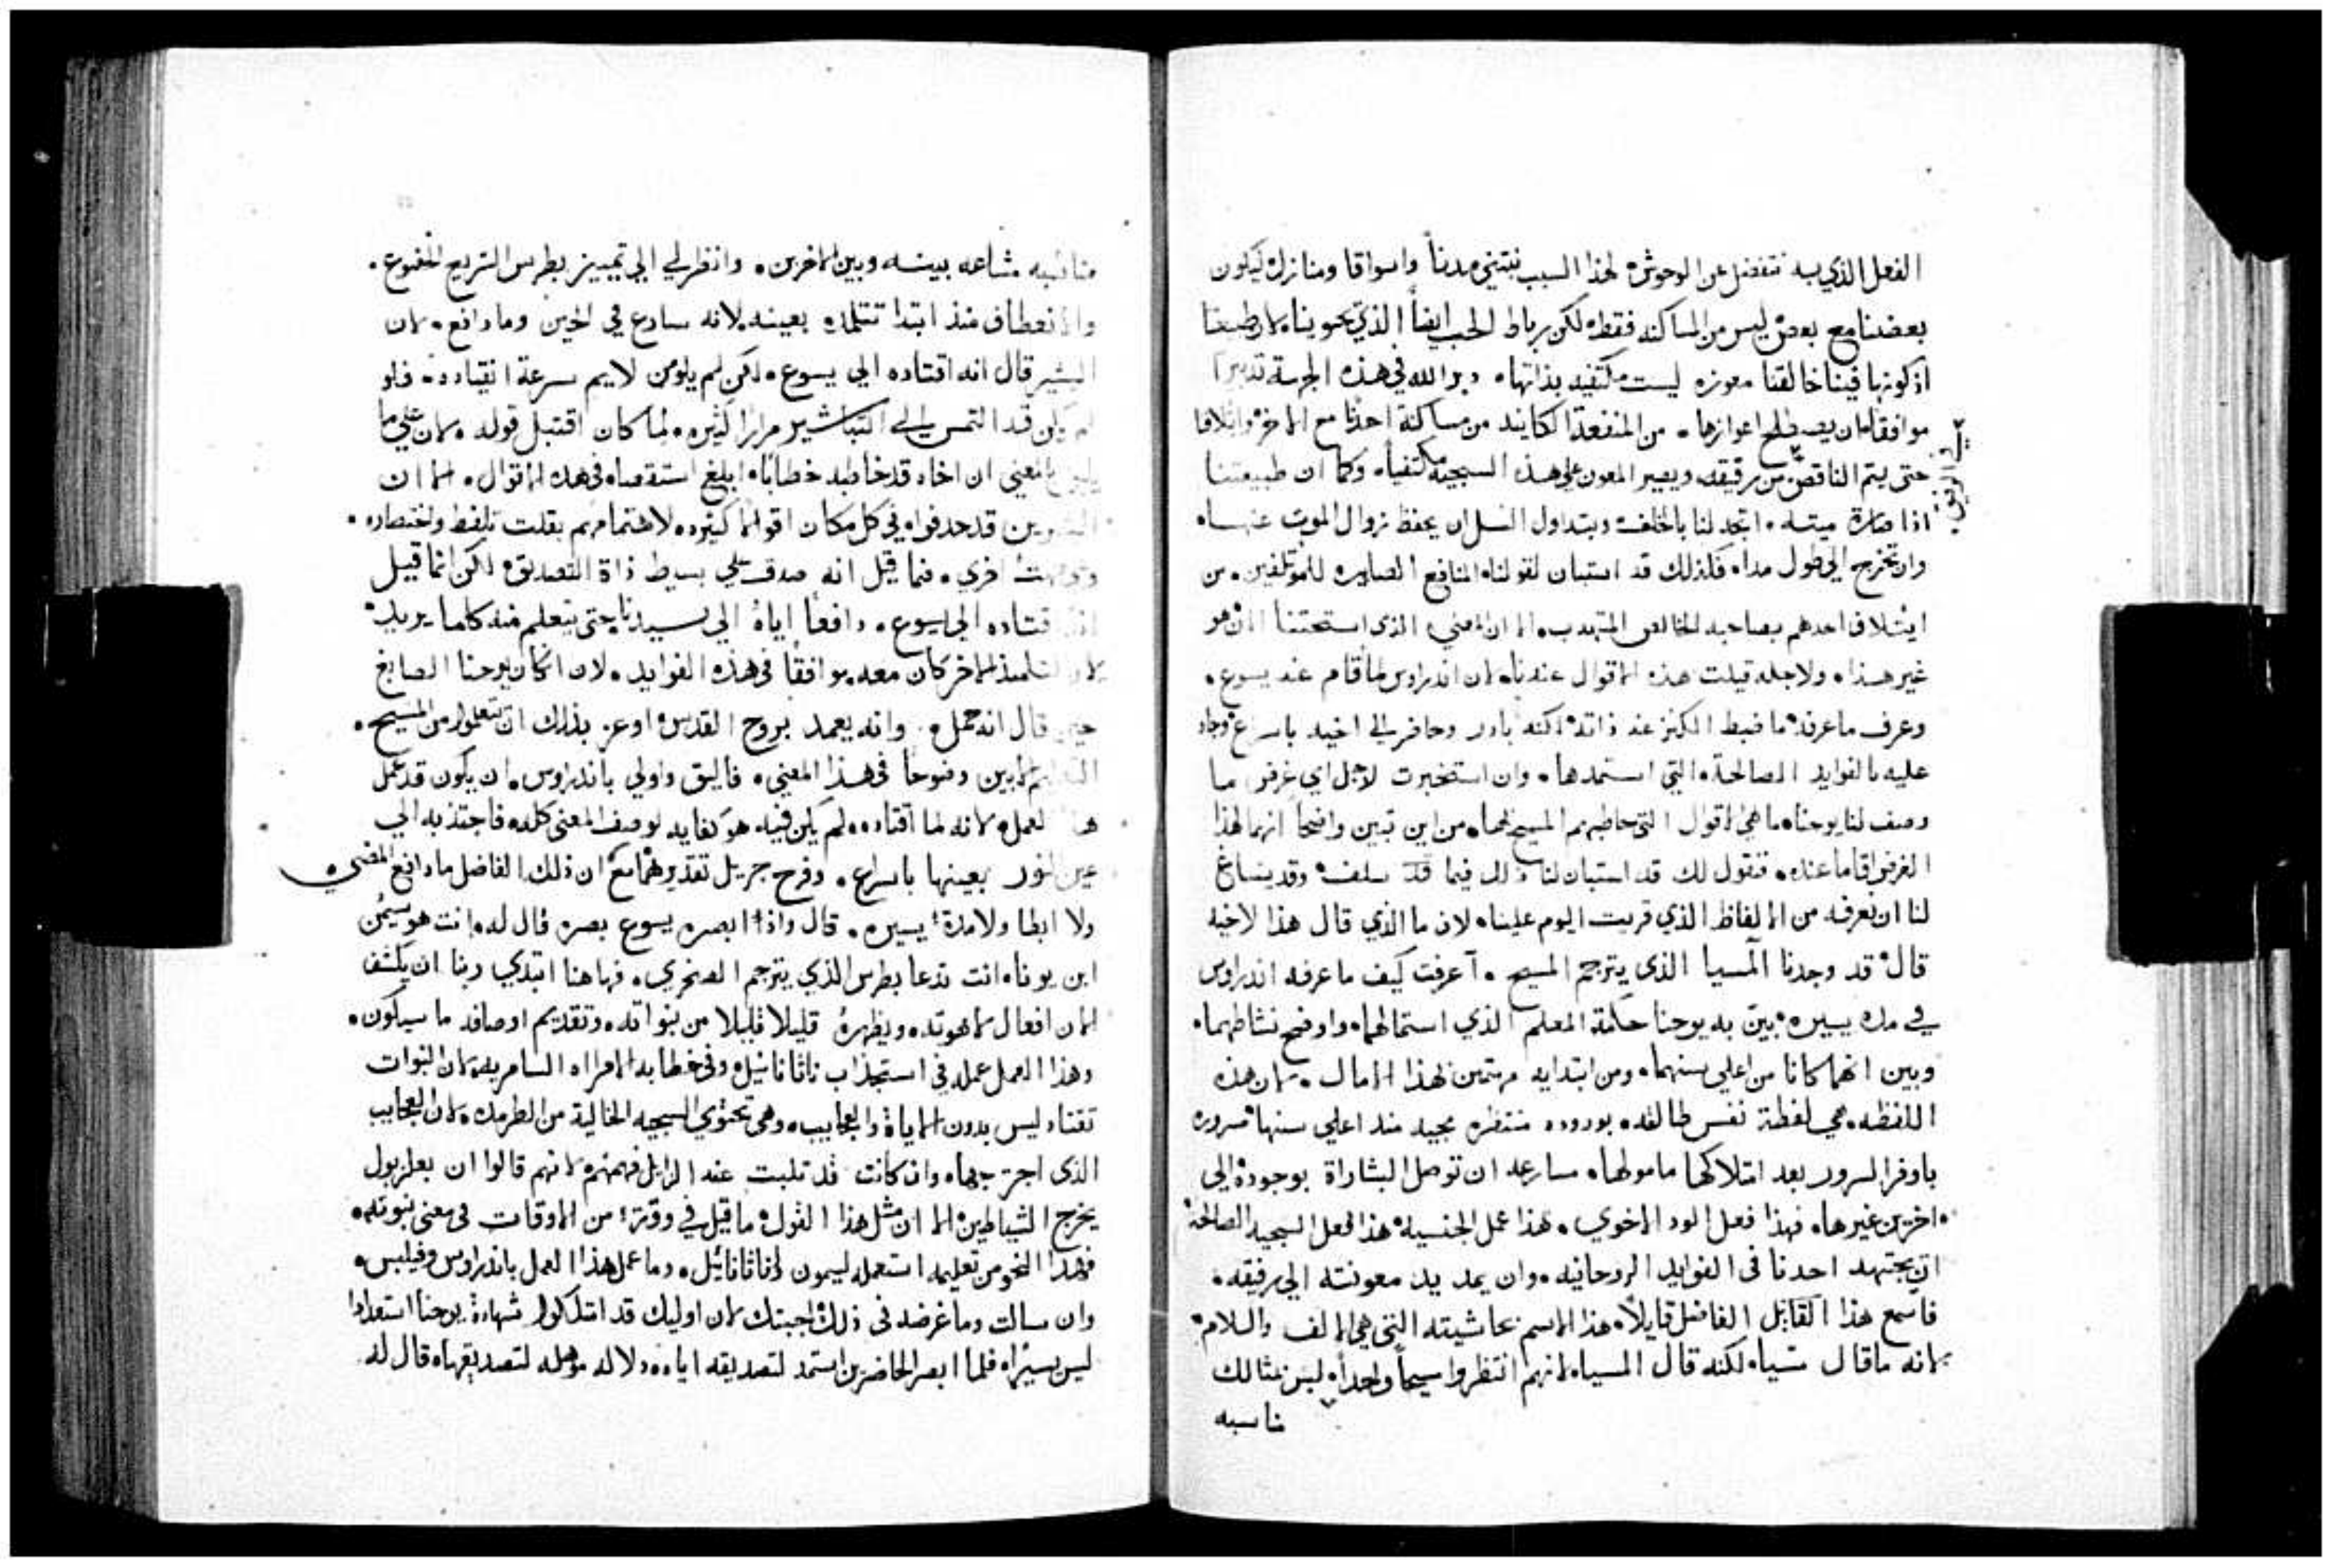 الفعل الذي به نتفضل عن الوحوش لهذا السبب نبتني مدناً واسواقا ومنازل ليكون
بعضنا مع بعض ليس من المساكنه فقط لكن برباط الحب ايضاً الذي يحوينا لان طبيعتنا
اذ كونها فينا خالقنا معوزه ليست مكتفيه بذاتها دبر الله في هذه الجهة تدبيرا
موافقا لان يصطلح اعوازها من المنفعة الكاينه من مساكنة احدنا مع الاخر وايتلافا
حتى يتم الناقص من رفيقه ويصير المعون على هذه السجية مكتفياه وكما ان طبيعتنا
اذا صارة ميته اتجه لنا بالخلف وبتداول النسل ان يحفظ زوال الموت عنها
وان تخرج الى طول مداه فكذلك قد استبان لقولنا المنافع الصايره للموتلفين من
ايتلاف احدهم بصاحبه الخالص المتهدب الا ان المعنى الذي استحتنا الان هو
غير هذا ولاجله قيلت هذه الاقوال عندنا لان اندراوس لما قام عند يسوع
وعرف ما عرفه ما ضبط الكنز عند ذاته لكنه بادر وحاضر الي اخيه باسراع وجاد
عليه بالفوايد الصالحة التي استمدها وان استخبرت لاجل اي غرض ما
وصف لنا يوحنا ما هي الاقوال التي خاطبهم المسيح بها من اين تبين واضحا انهما لهذا
الغرض اقاما عنده فنقول لك قد استبان لنا ذلك فيما قد سلف وقد ينساغ
لنا ان نعرفه من الالفاظ الذي قريت اليوم علينا لان ما الذي قال هذا لاخيه
قال قد وجدنا المسيا الذي يترجم المسيح أعرفت كيف ما عرفه اندراوس
في مده يسيره بين به يوحنا حكمة المعلم الذي استمالهما واوضح نشاطهما
وبين انهما كانا من اعلى سنهما ومن ابتدايه مهتمين لهذا الامال لان هذه
اللفظه هي لفظة نفس طالقه بوروده منتظره مجيه منذ اعلى سنها مسروره
باوفر السرور بعد امتلاكها مامولها مسارعه ان توصل البشاراة بوجوده الى
اخرين غيرها فهذا فعل الود الاخوي هذا عمل الجنسيه هذا فعل السجيه الصالحة
ان يجتهد احدنا في الفوايد الروحانيه وان يمد يد معونته الى رفيقه
فاسمع هذا القايل الفاضل قايلاً هذا الاسم بحاشيته التي هي الالف واللام
لانه ما قال مسيا لكنه قال المسيا لانهم انتظروا مسيحاً واحداً ليس مثالك
ناسبه
مناسبه مشاعه بينه وبين الاخرين وانظر لي الي تمييز بطرس السريع الخضوع
والانعطاف منذ ابتدا تتلمده بعينه لانه سارع في الحين وما دافع لان
البشير قال انه اقتاده الى يسوع لكن لم يلومن لايم سرعة انقياده فلو
لم يكن قد التمس التباشير مرارا كثيره لما كان اقتبل قوله لان على ما
المعنى ان اخاه قد خاطبه خطابا ابلغ استقصاه في هذه الاقوال الا ان
قد حدفوا في كل مكان اقوالا كثيره لاهتمامهم بقلت تلفظ واختصاره
اخري فما قيل انه صدق علي بسيط ذاة التصديق لكن انما قيل
اقتاده الى يسوع دافعا اياه الى سيدنا حتى يتعلم منه كلما يريد
لان التلميذ الاخر كان معه موافقا في هذه الفوايد لان ان كان يوحنا الصابغ
حين قال انه حمل وانه يعمد بروح القدس اوعز بذلك ان تتعلموا من المسيح
ابين وضوحا في هذا المعنى فاليق واولي باندراوس ان يكون قد عمل
هذا العمل لانه لما اقتاده لم يكن فيه هو كفايه لوصف المعنى كله فاجتذبه الي
عين النور بعينها باسراع وفرح جزيل تقديرهما مع ان ذلك الفاضل ما دافع المضي
ولا ابطا ولا مدة يسيره قال واذ ابصره يسوع بصره قال له انت هو سيمن
ابن يونا انت تدعا بطرس الذي يترجم الصخري فهاهنا ابتدي ربنا ان يكشف
الان افعال لاهوته ويظهره قليلا قليلا من نبواته وتقديم اوصافه ما سيكون
وهذا العمل عمله في استجذاب ناثانائيل وفي خطابه الامراه السامريه لان النبوات
تقتاد ليس بدون الاياة والعجايب وهي تحتوي السجيه الخالية من الطرمده لان العجايب
الذى اجترحها وان كانت قد تلبت عند الزايل فهمهم لانهم قالوا ان بعلزبول
يخرج الشياطين الا ان مثل هذا القول ما قيل في وقت من الاوقات في معنى نبوته
فهذا النحو من تعليمه استعمله لسيمون لناثانائيل وما عمل هذا العمل باندراوس وفيلبس
وان سالت وما غرضه في ذلك اجبتك لان اوليك قد امتلكوا شهادة يوحنا استعدادا
ليس يسيرا فلما ابصر الحاضرين استمد لتصديقه اياه دلاله موهله لتصديقها قال له